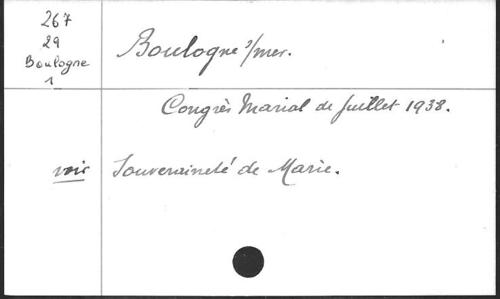 267
29
Boulogne
1
Boulogne s/mer.
Congrès Marial de Juillet 1938.
voir Souveraineté de Marie.